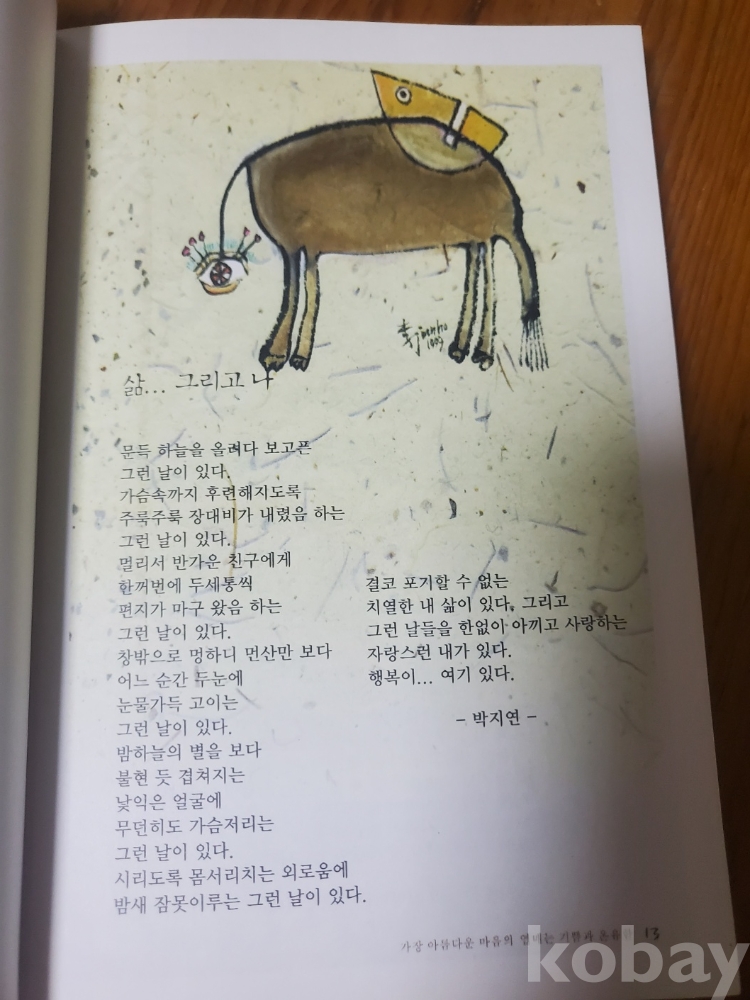 李 jinnho
삶... 그리고 나
문득 하늘을 올려다 보고픈
그런 날이 있다.
가슴속까지 후련해지도록
주룩주룩 장대비가 내렸음 하는
그런 날이 있다.
멀리서 반가운 친구에게
한꺼번에 두세통씩
편지가 마구 왔음 하는
그런 날이 있다.
창밖으로 멍하니 먼산만 보다
어느 순간 두눈에
눈물가득 고이는
그런 날이 있다.
밤하늘의 별을 보다
불현 듯 겹쳐지는
낯익은 얼굴에
무던히도 가슴저리는
그런 날이 있다.
시리도록 몸서리치는 외로움에
밤새 잠못이루는 그런 날이 있다.
결코 포기할 수 없는
치열한 내 삶이 있다. 그리고
그런 날들을 한없이 아끼고 사랑하는
자랑스런 내가 있다.
행복이... 여기 있다.
– 박지연 –
가장 아름다운 마음의 열매는 기쁨과 13
kobay